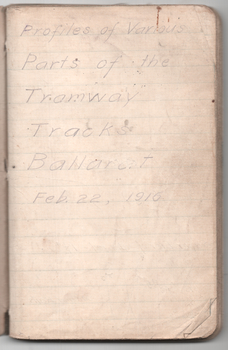 Profiles of Various
Parts of the
"Tramway"
Tracks
Ballarat
Feb. 22, 1916